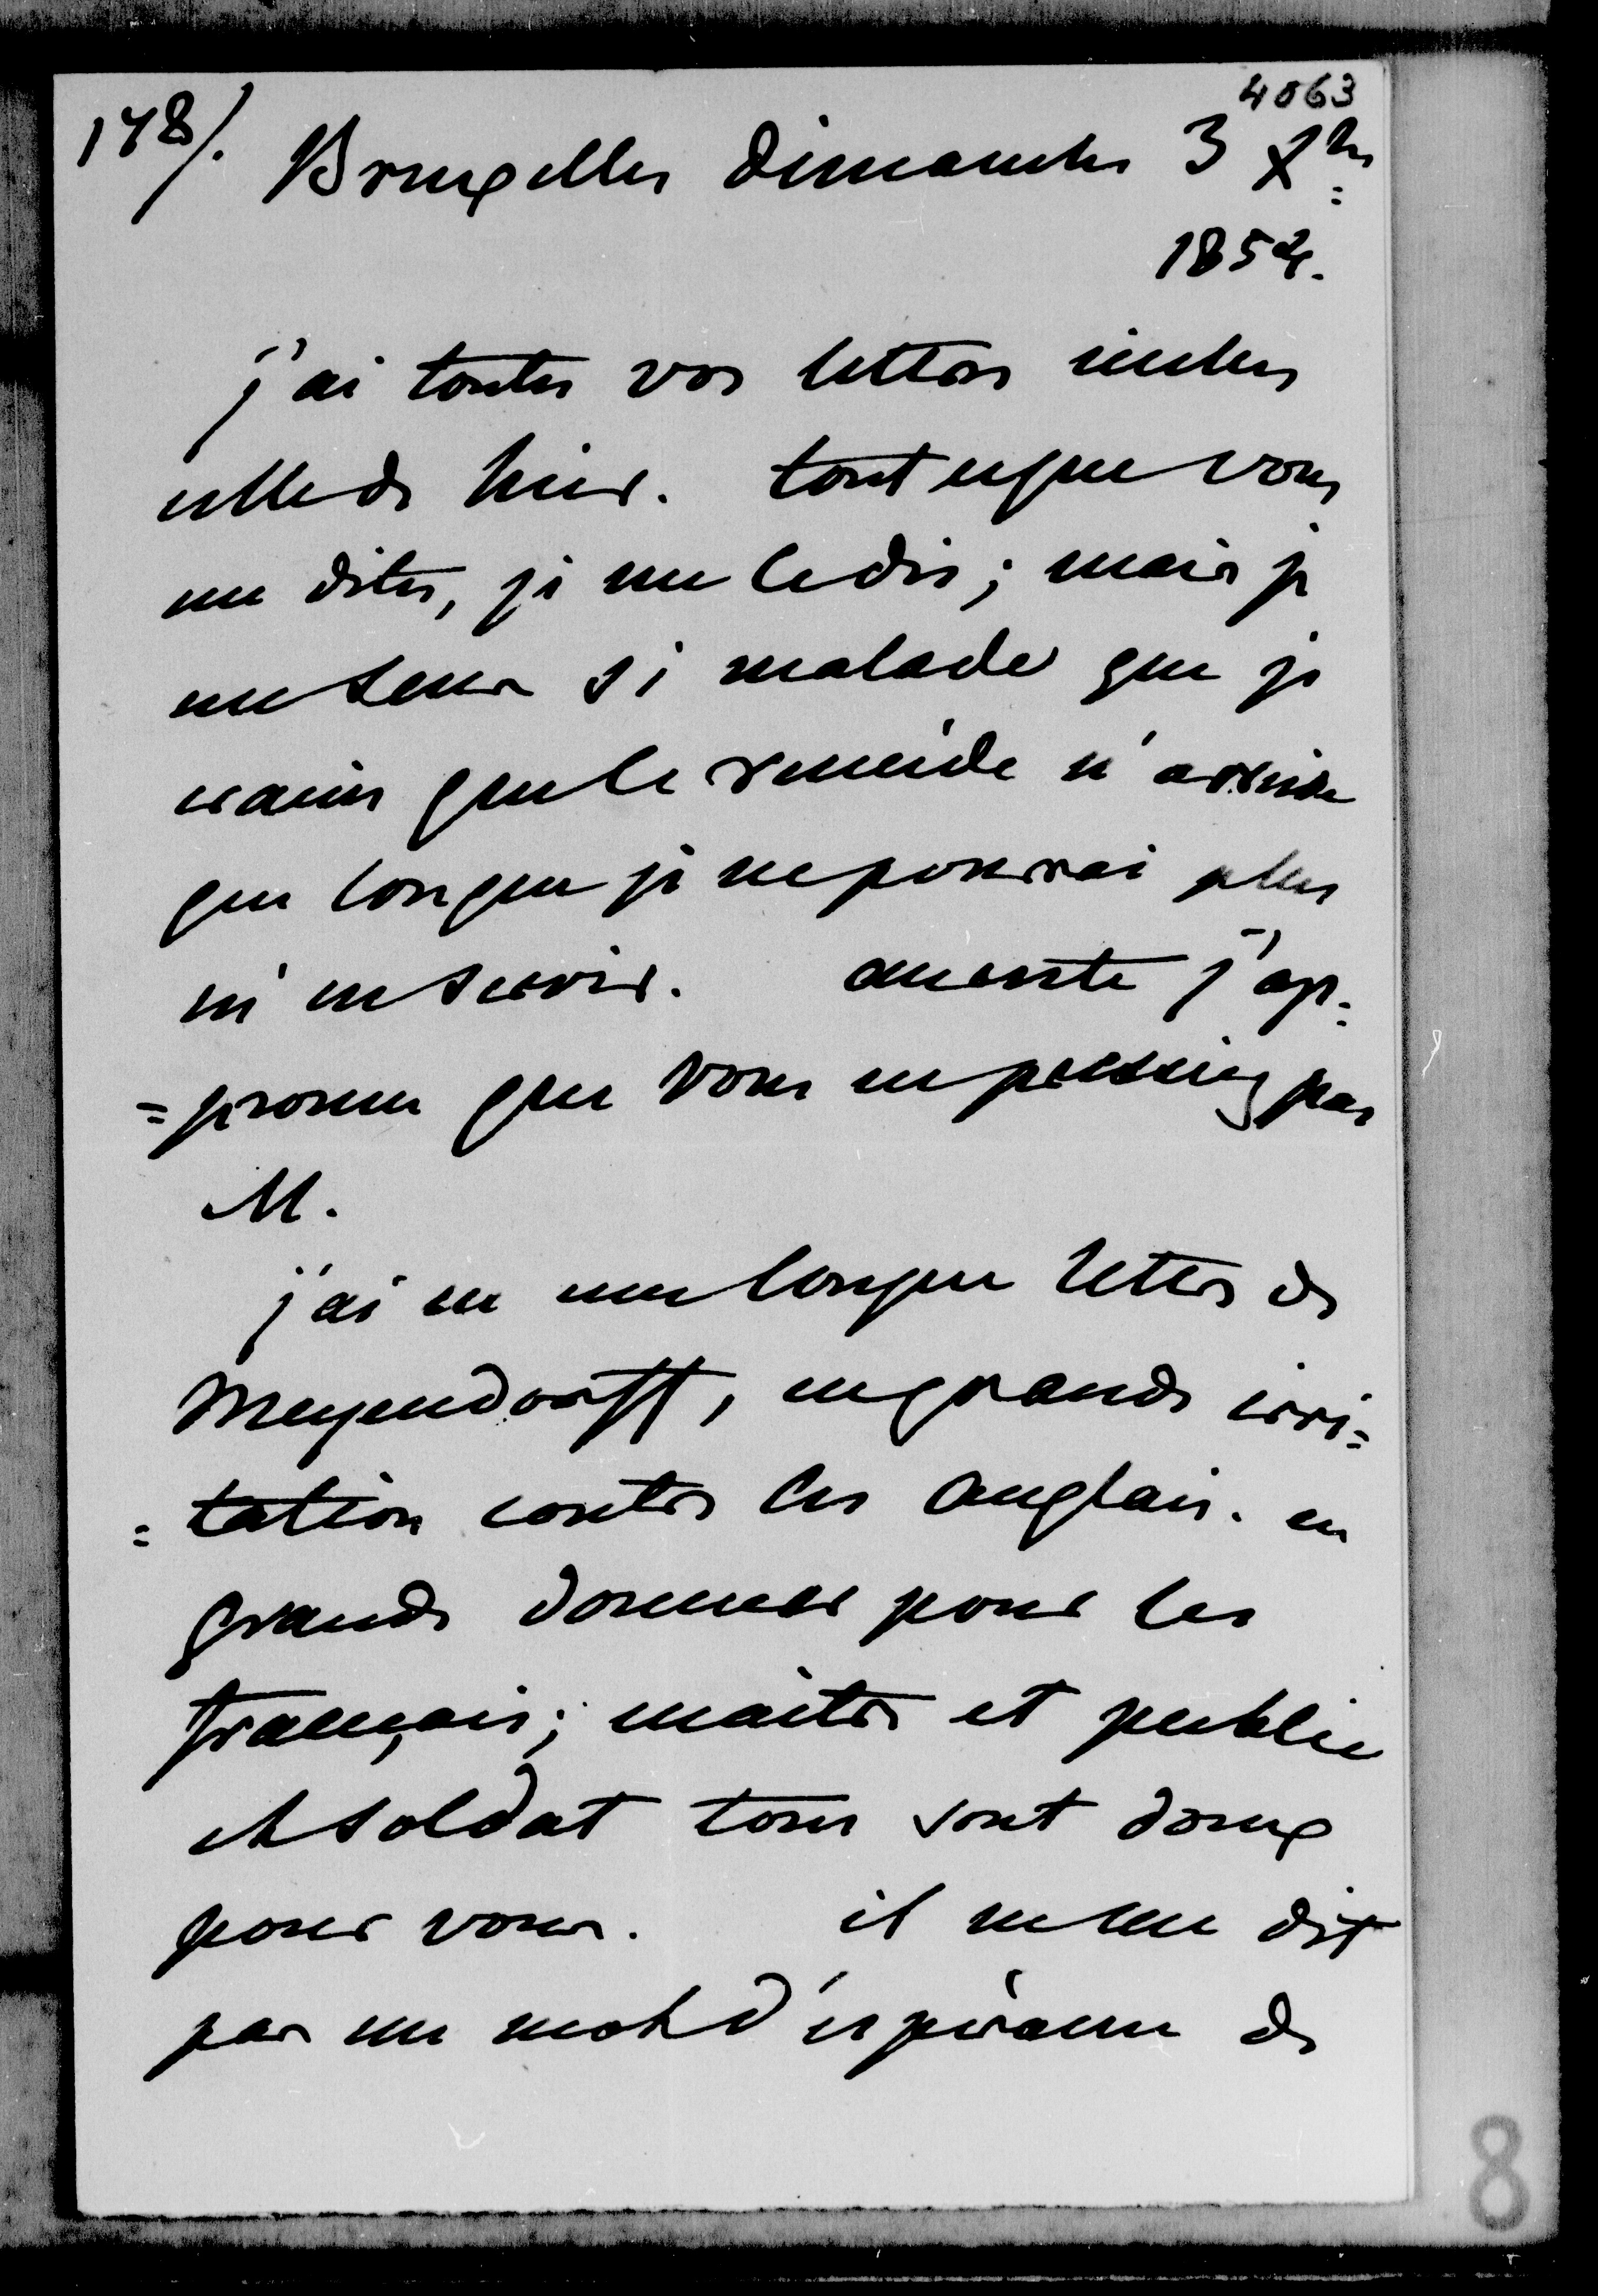 4063
178/. Bruxelles Dimanche 3 Xbre
1854.
j'ai toutes vos lettres inclus
celle de hier. tout ce que vous
me dites, je me le dis ; mais je
me sens si malade que je
crains que le remède n'arrive
que lorsque je ne pourrai plus
m'en servir. au reste j'ap=
=prouve que vous ne pressiez pas
M.
j'ai eu une longue lettre de
Meyendorff, en grande irri=
=tation contre les anglais. en
grande douceur pour les
français ; maitre et public
et soldat tous sont doux
pour vous. il ne me dit
pas un mot d'espérance de
8